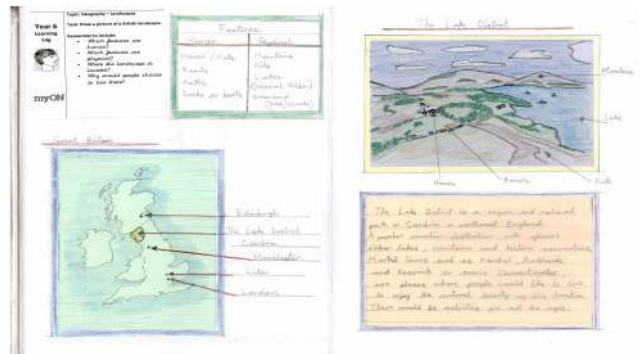 Year 6
Learning
Log
myON
Topic: Geography – Landscapes
Task: Draw a picture of a British landscape.
Remember to include:
Which features are
human?
Which features are
physical?
Where the landscape is
located?
Why would people choose
to live there?
Features
Human
Physical
Roads
Paths
Mountains
Hills
Lakes
Great Britain
Edinburgh
The Lake District
Cumbria
Manchester
Luton
London
The Lake District
Mountains
Lake
Hills
Houses
The Lake District is a region and national
park in Cumbria in northwest England.
A popular vacation destination with glacial
ribbon lakes, mountains and historic
Market towns such as Kendal, Ambleside
and Keswick
are places where people would like to live
to enjoy the natural beauty of this location.
There would be activities for all the ages.